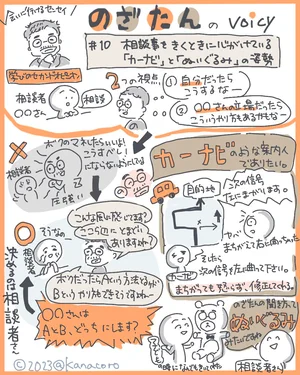 のざたんのvoicy
会いに行けるセンセイ
#10 相談事をきくときに心がけている
「カーナビ」と「ぬいぐるみ」の姿勢
学びのセカンドオピニオン
相談者
〇〇さん
相談
2つの視点
① 自分だったら
こうするなー
② 〇〇さんの立場だったら
こういうやり方もあるかもなー
ボクのマネしたらいいよ!
こうすべし!
にならないようにしている
相談者
圧強い
カーナビ
のような案内人
でありたい。
目的地
次の信号
左にまがります。
ヤバ
まちがえて右に曲っちゃった
そしたら
次の信号を左に曲って下さい。
まちがっても怒らず、修正してくる。
こんな風に感じてます?
ここら辺にとまどい
ありますかねー
そうなの
相談者
ボクだったらAという方法とか
Bというやり方もできそうですねー
〇〇さんは
AとB、どっちにします?
決めるのは相談者さん
のざたんの聞き方って
ぬいぐるみ
みたいですねー
相談者さん
©2023@kanacero